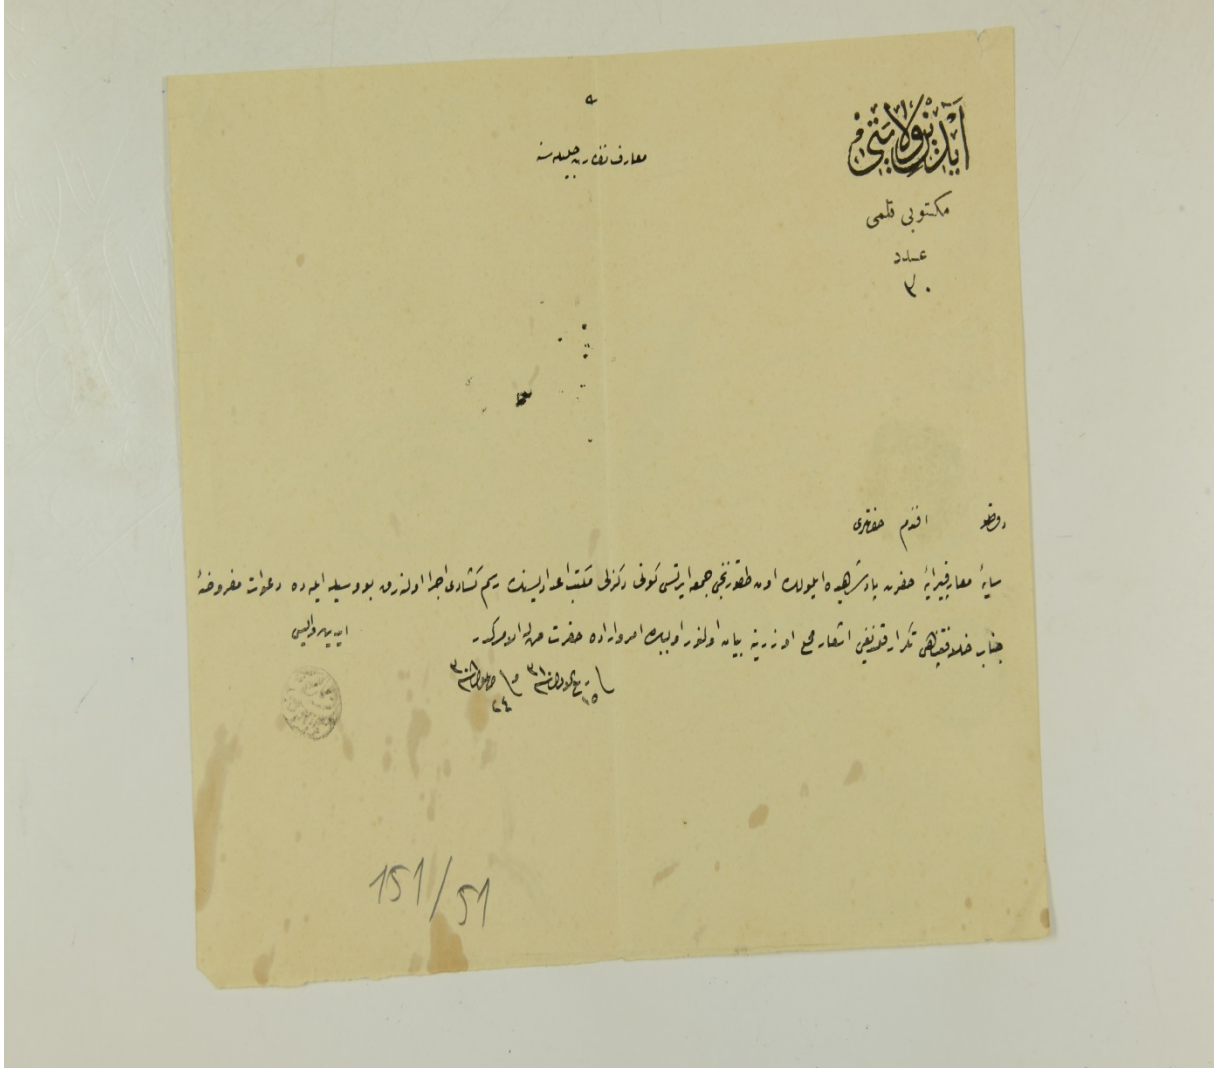 آیدین ولایتی
مکتوبی قلمی
عدد
٣٠
معارف نظارت جلیله‌سنه
دولتلو افندم حضرتلری
سایهٔ معارفپیرایهٔ حضرت پادشاهیده ایلولك اون طقوزنجی جمعه ایرتسی کونی دکزلی مکتب اعدادیسنك رسم کشادی اجرا اولنه‌رق بو وسیله ایله ده دعوات مفروضهٔ
جناب خلافتپناهی تکرار قلندیغی اشعار محلی اوزرینه بیان اولنور اولبابده امر و اراده حضرت من له الامرکدر
١٥ ربیع الاول سنه ٣١٠ و ٢٤ ایلول سنه ٣٠٨
آیدین والیسی
151/51